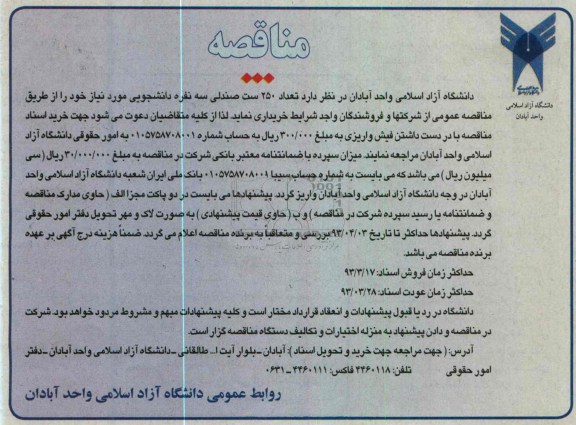 مناقصه
دانشگاه آزاد اسلامی
واحد آبادان
دانشگاه آزاد اسلامی واحد آبادان در نظر دارد تعداد ۲۵۰ ست صندلی سه نفره دانشجویی مورد نیاز خود را از طریق
مناقصه عمومی از شرکتها و فروشندگان واجد شرایط خریداری نماید. لذا از کلیه متقاضیان دعوت می شود جهت خرید اسناد
مناقصه با در دست داشتن فیش واریزی به مبلغ ۳۰۰/۰۰۰ ریال به حساب شماره ۰۱۰۵۷۵۸۷۰۸۰۰۱ به امور حقوقی دانشگاه آزاد
اسلامی واحد آبادان مراجعه نمایند. میزان سپرده یا ضمانتنامه معتبر بانکی شرکت در مناقصه به مبلغ ۳۰/۰۰۰/۰۰۰ ریال ( سی
میلیون ریال ) می باشد که می بایست به شماره حساب سیبا ۰۱۰۵۷۵۸۷۰۸۰۰۸ بانک ملی ایران شعبه دانشگاه آزاد اسلامی واحد
آبادان در وجه دانشگاه آزاد اسلامی واحد آبادان واریز گردد. پیشنهادها می بایست در دو پاکت مجزا الف ( حاوی مدارک مناقصه
و ضمانتنامه یا رسید سپرده شرکت در مناقصه ) و ب ( حاوی قیمت پیشنهادی ) به صورت لاک و مهر تحویل دفتر امور حقوقی
گردد. پیشنهادها حداکثر تا تاریخ ۹۳/۰۴/۰۳ بررسی و متعاقباً به برنده مناقصه اعلام می گردد. ضمناً هزینه درج آگهی بر عهده
برنده مناقصه می باشد.
حداکثر زمان فروش اسناد: ۹۳/۳/۱۷
حداکثر زمان عودت اسناد: ۹۳/۰۳/۲۸
دانشگاه در رد یا قبول پیشنهادات و انعقاد قرارداد مختار است و کلیه پیشنهادات مبهم و مشروط مردود خواهد بود. شرکت
در مناقصه و دادن پیشنهاد به منزله اختیارات و تکالیف دستگاه مناقصه گزار است.
آدرس: ( جهت مراجعه جهت خرید و تحویل اسناد ): آبادان ـ بلوار آیت ا... طالقانی ـ دانشگاه آزاد اسلامی واحد آبادان ـ دفتر
امور حقوقی تلفن: ۴۴۶۰۱۱۸ فاکس: ۴۴۶۰۱۱۱ - ۰۶۳۱
روابط عمومی دانشگاه آزاد اسلامی واحد آبادان